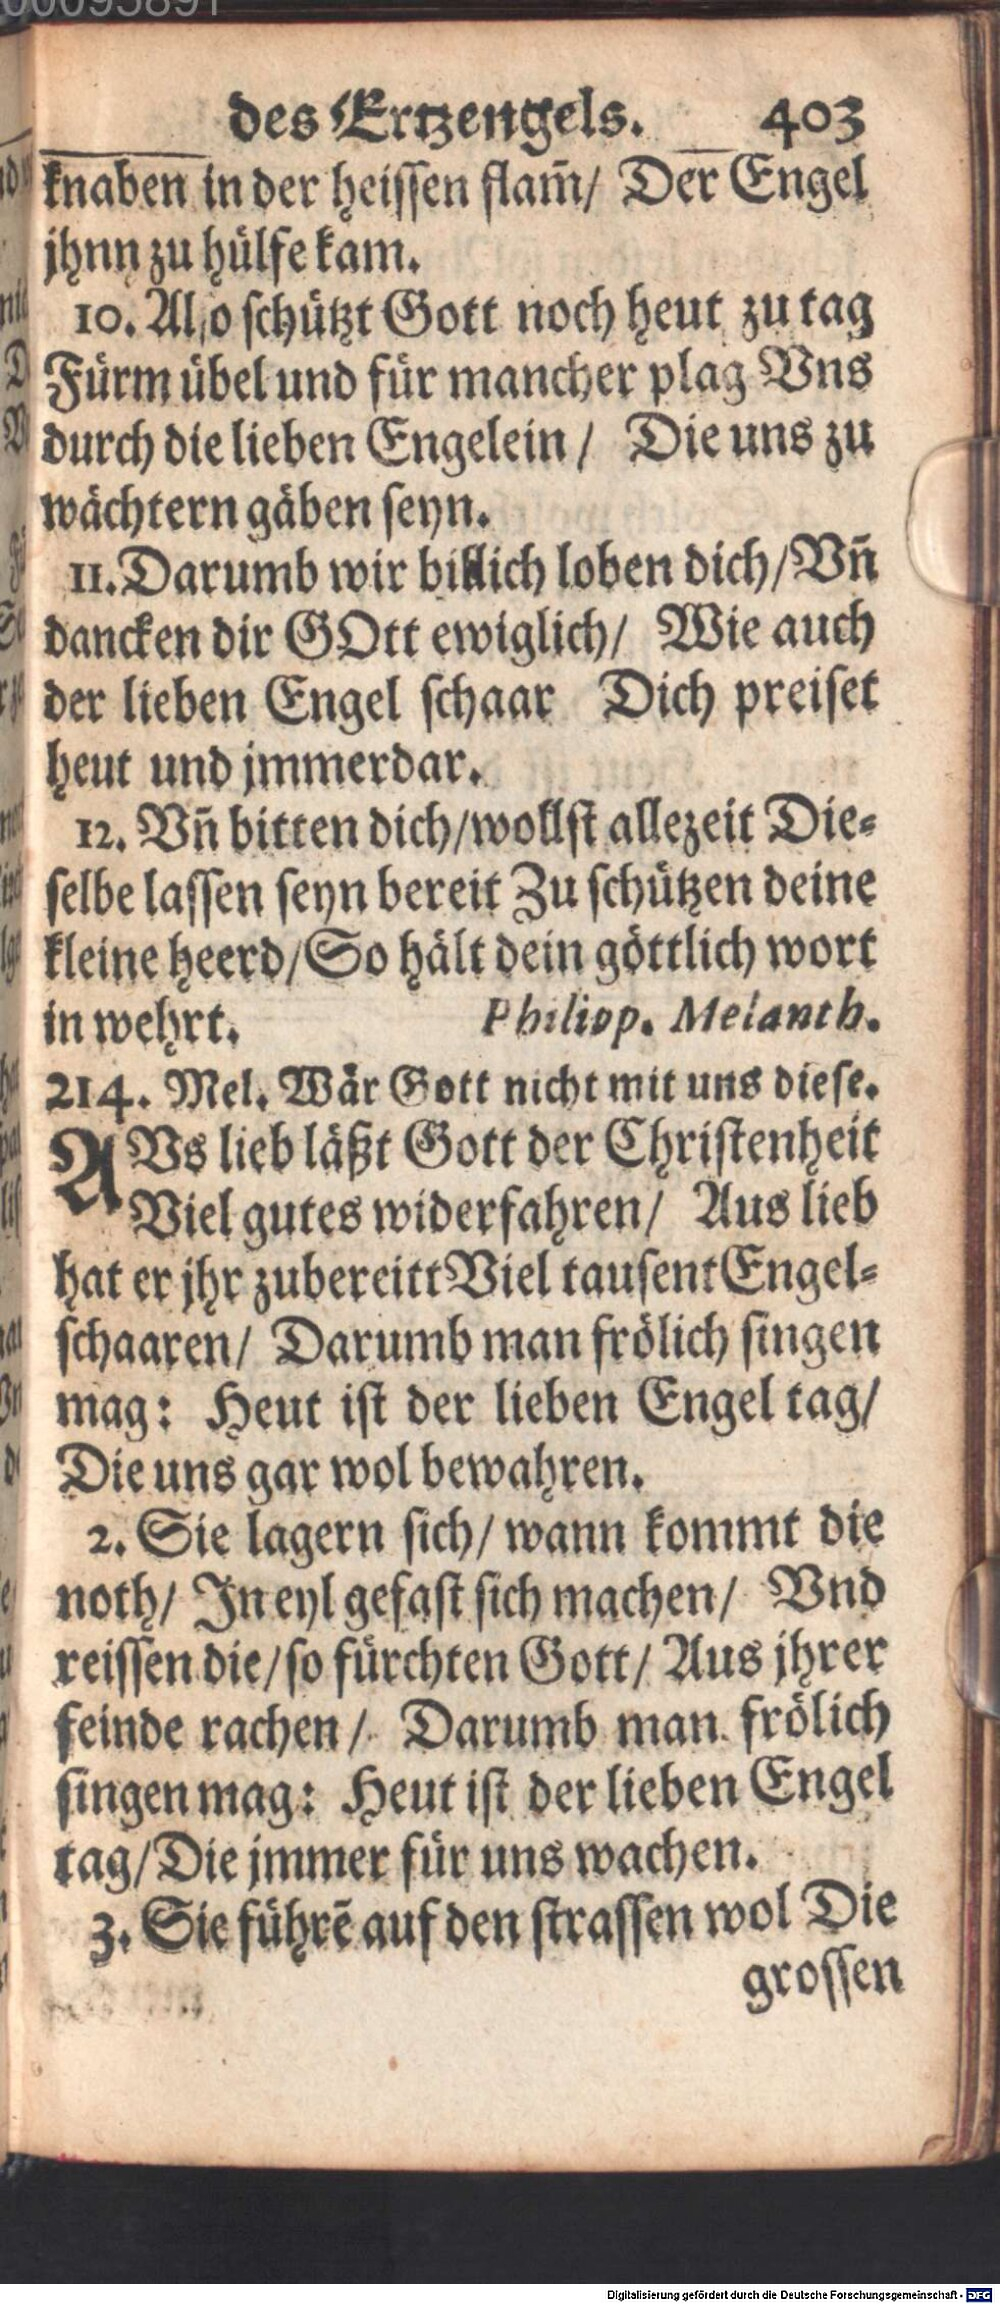 00095891
des Ertzengels. 403
knaben in der heissen flam̃/ Der Engel
jhnn zu hülfe kam.
10. Also schützt Gott noch heut zu tag
Fürm übel und für mancher plag Vns
durch die lieben Engelein / Die uns zu
wächtern gäben seyn.
11. Darumb wir billich loben dich/Vn̄
dancken dir GOtt ewiglich/ Wie auch
der lieben Engel schaar Dich preiset
heut und jmmerdar.
12. Vn̄ bitten dich/wollst allezeit Die-
selbe lassen seyn bereit Zu schützen deine
kleine heerd/So hält dein göttlich wort
in wehrt. Philipp. Melanth.
214. Mel. Wär Gott nicht mit uns diese.
AVs lieb läßt Gott der Christenheit
Viel gutes widerfahren/ Aus lieb
hat er jhr zubereitt Viel tausent Engel-
schaaren/ Darumb man frölich singen
mag: Heut ist der lieben Engel tag/
Die uns gar wol bewahren.
2. Sie lagern sich/ wann kommt die
noth/ In eyl gefast sich machen/ Vnd
reissen die/so fürchten Gott/ Aus jhrer
feinde rachen/ Darumb man frölich
singen mag: Heut ist der lieben Engel
tag/Die jmmer für uns wachen.
3. Sie führē auf den strassen wol Die
grossen
Digitalisierung gefördert durch die Deutsche Forschungsgemeinschaft - DFG